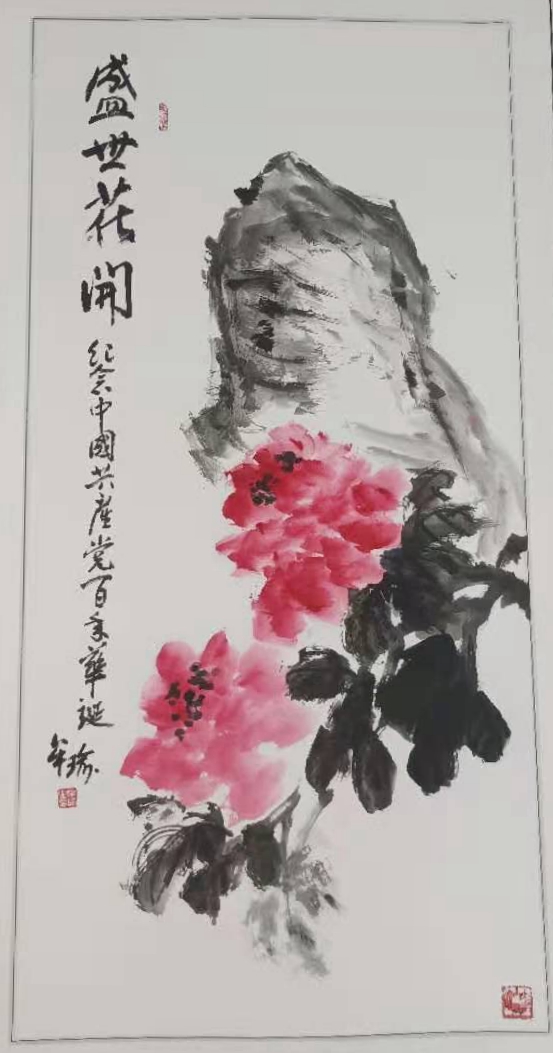 盛世花開
纪念中國共産党百年華诞